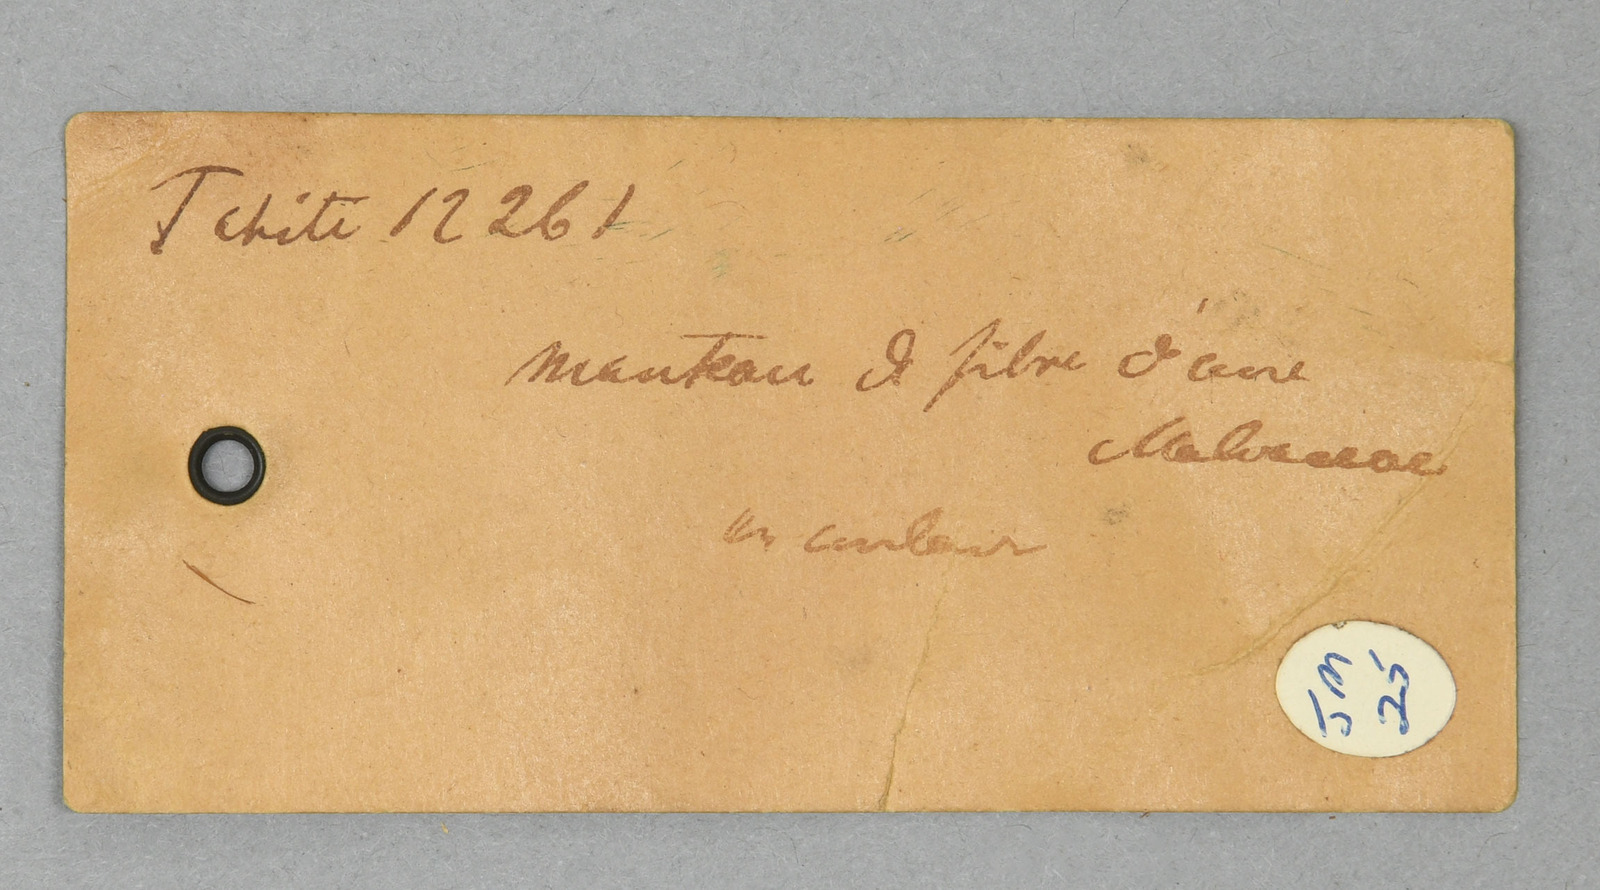 Tahiti 12261
manteau de fibre d'une
Malvacae
en couleur
JM
25